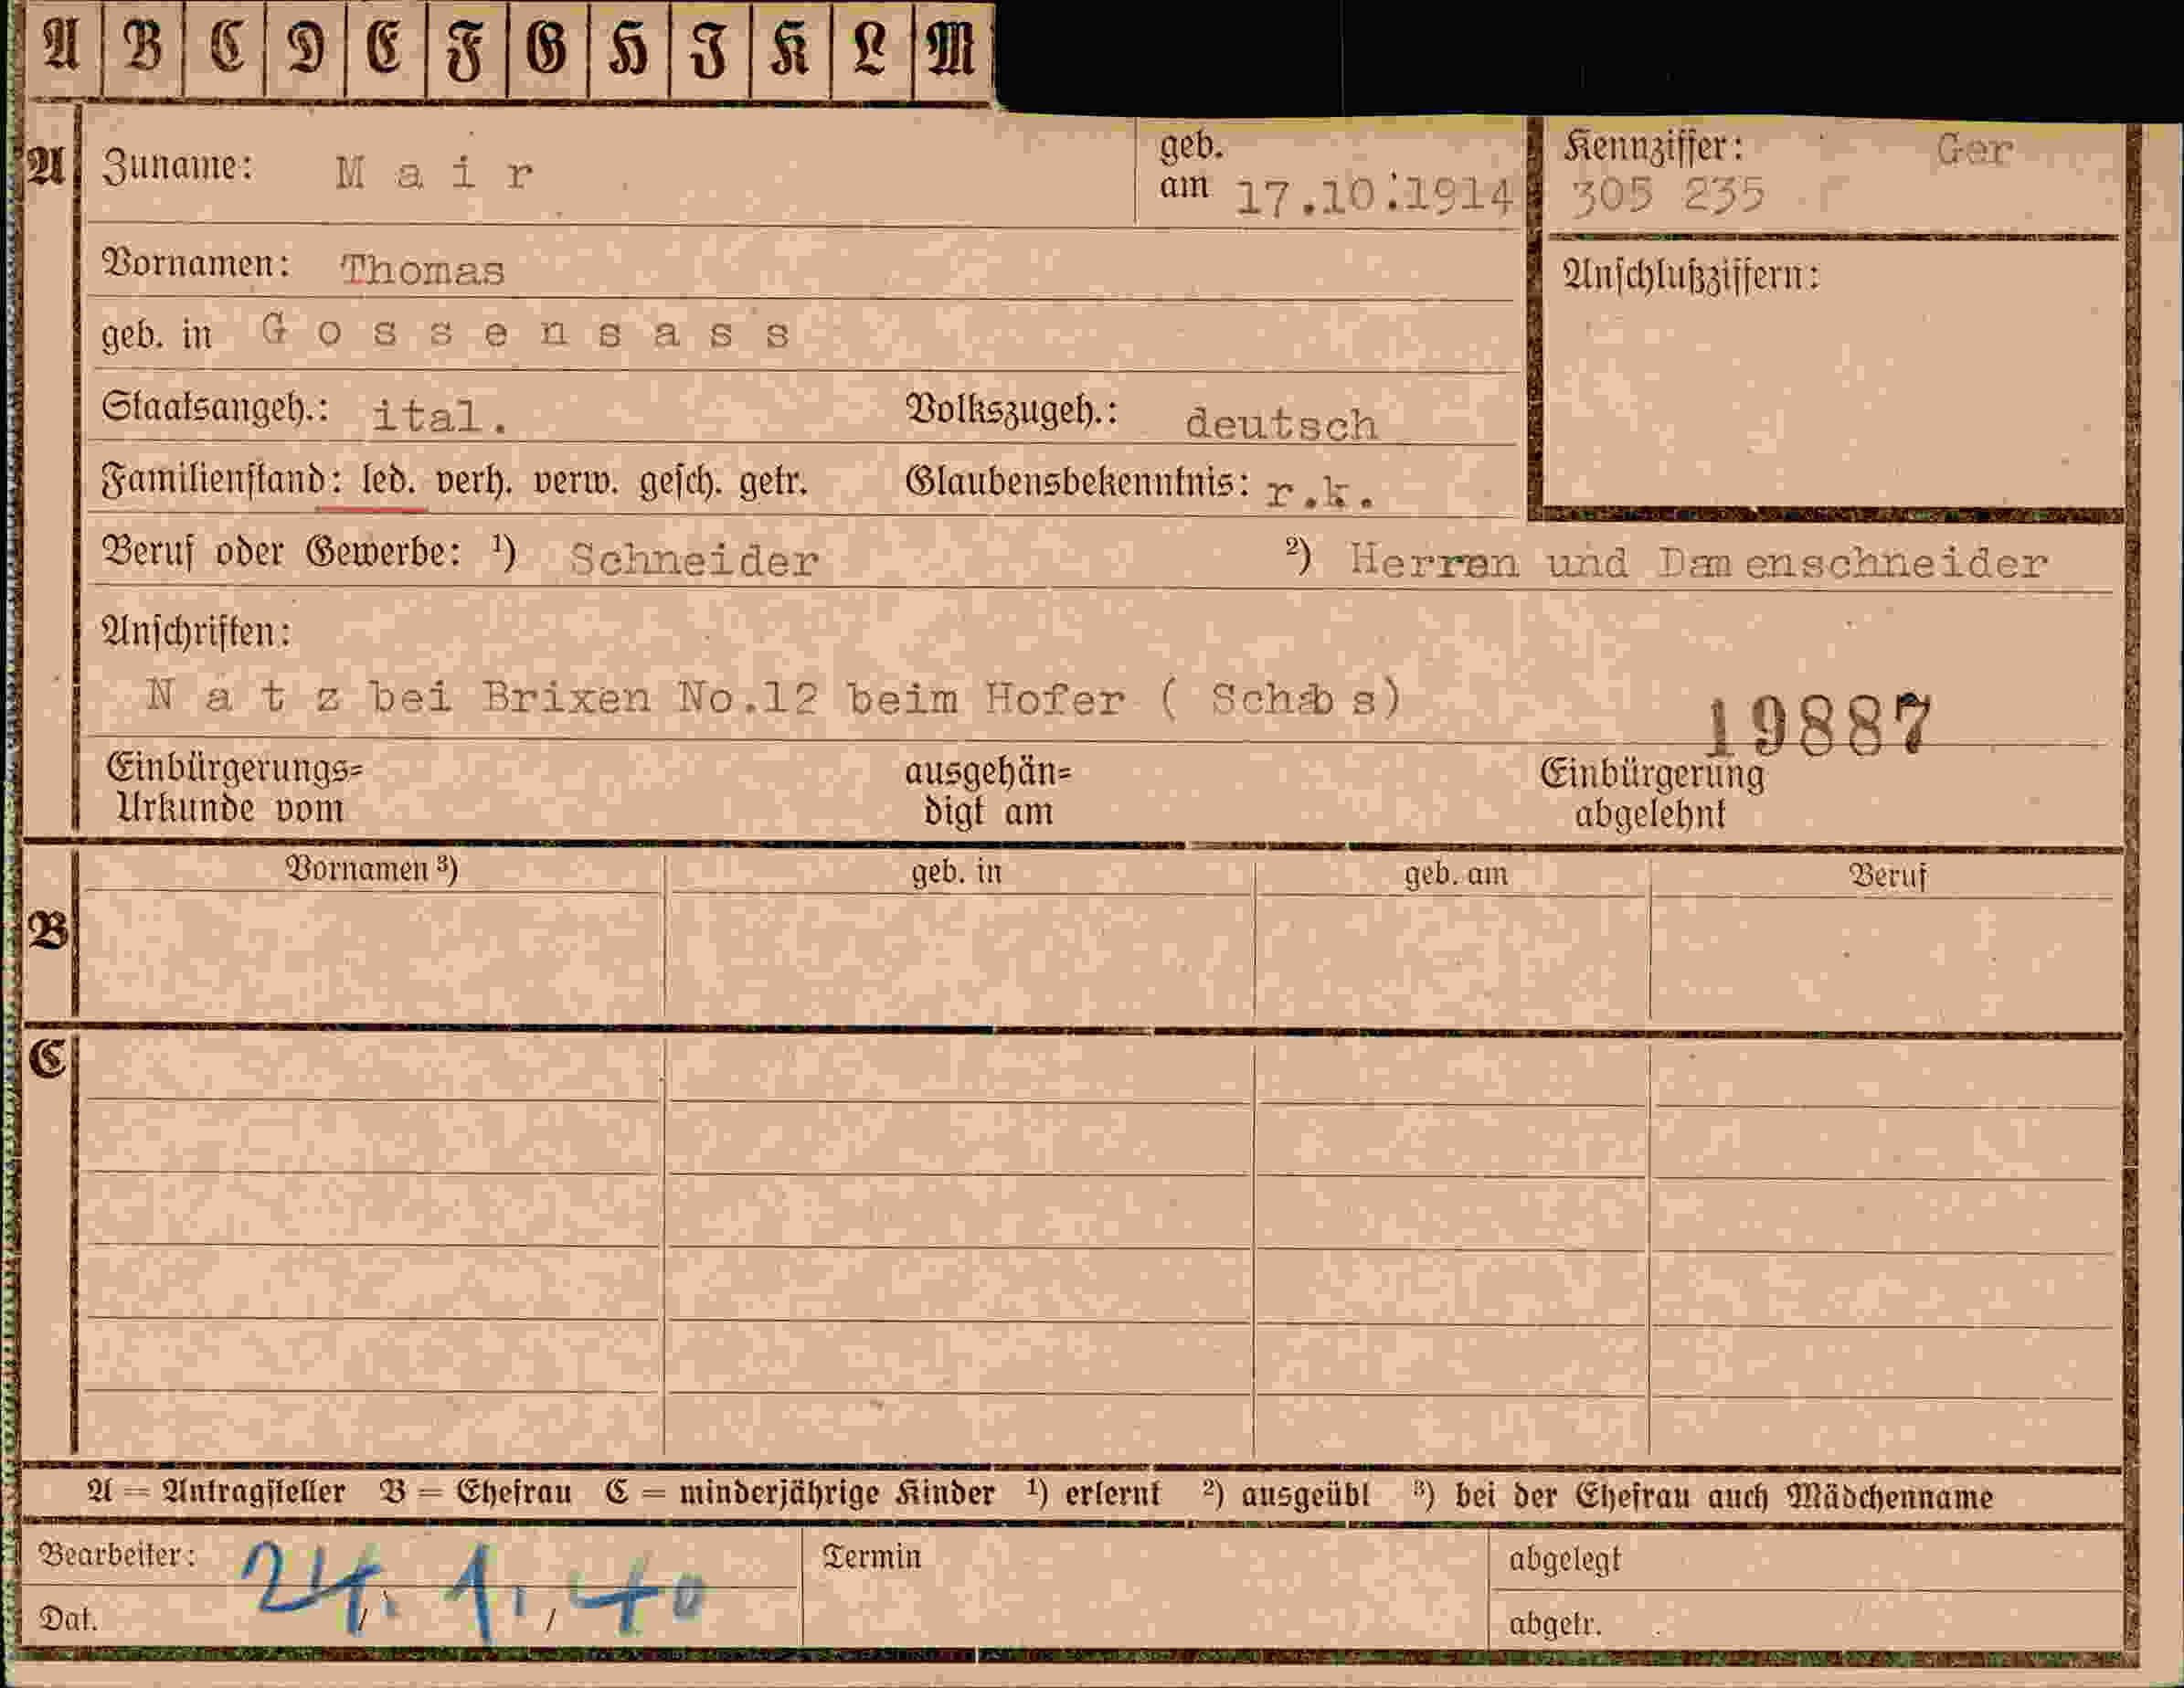 A B C D E F G H I K L M
A Zuname: M a i r geb. am 17.10.1914 Kennziffer: Ger
305 235
Vornamen: Thomas Anschlußziffern:
geb. in G o s s e n s a s s
Staatsangeh.: ital. Volkszugeh.: deutsch
Familienstand: led. verh. verw. gesch. getr. Glaubensbekenntnis: r.k.
Beruf oder Gewerbe: ¹) Schneider ²) Herren und Damenschneider
Anschriften:
N a t z bei Brixen No.12 beim Hofer ( Schabs)
19887
Einbürgerungs= ausgehän= Einbürgerung
Urkunde vom digt am abgelehnt
Vornamen ³) geb. in geb. am Beruf
B
C
A = Antragsteller B = Ehefrau C = minderjährige Kinder ¹) erlernt ²) ausgeübt ³) bei der Ehefrau auch Mädchenname
Bearbeiter: 24. 1. 40 Termin abgelegt
Dat. / / abgetr.